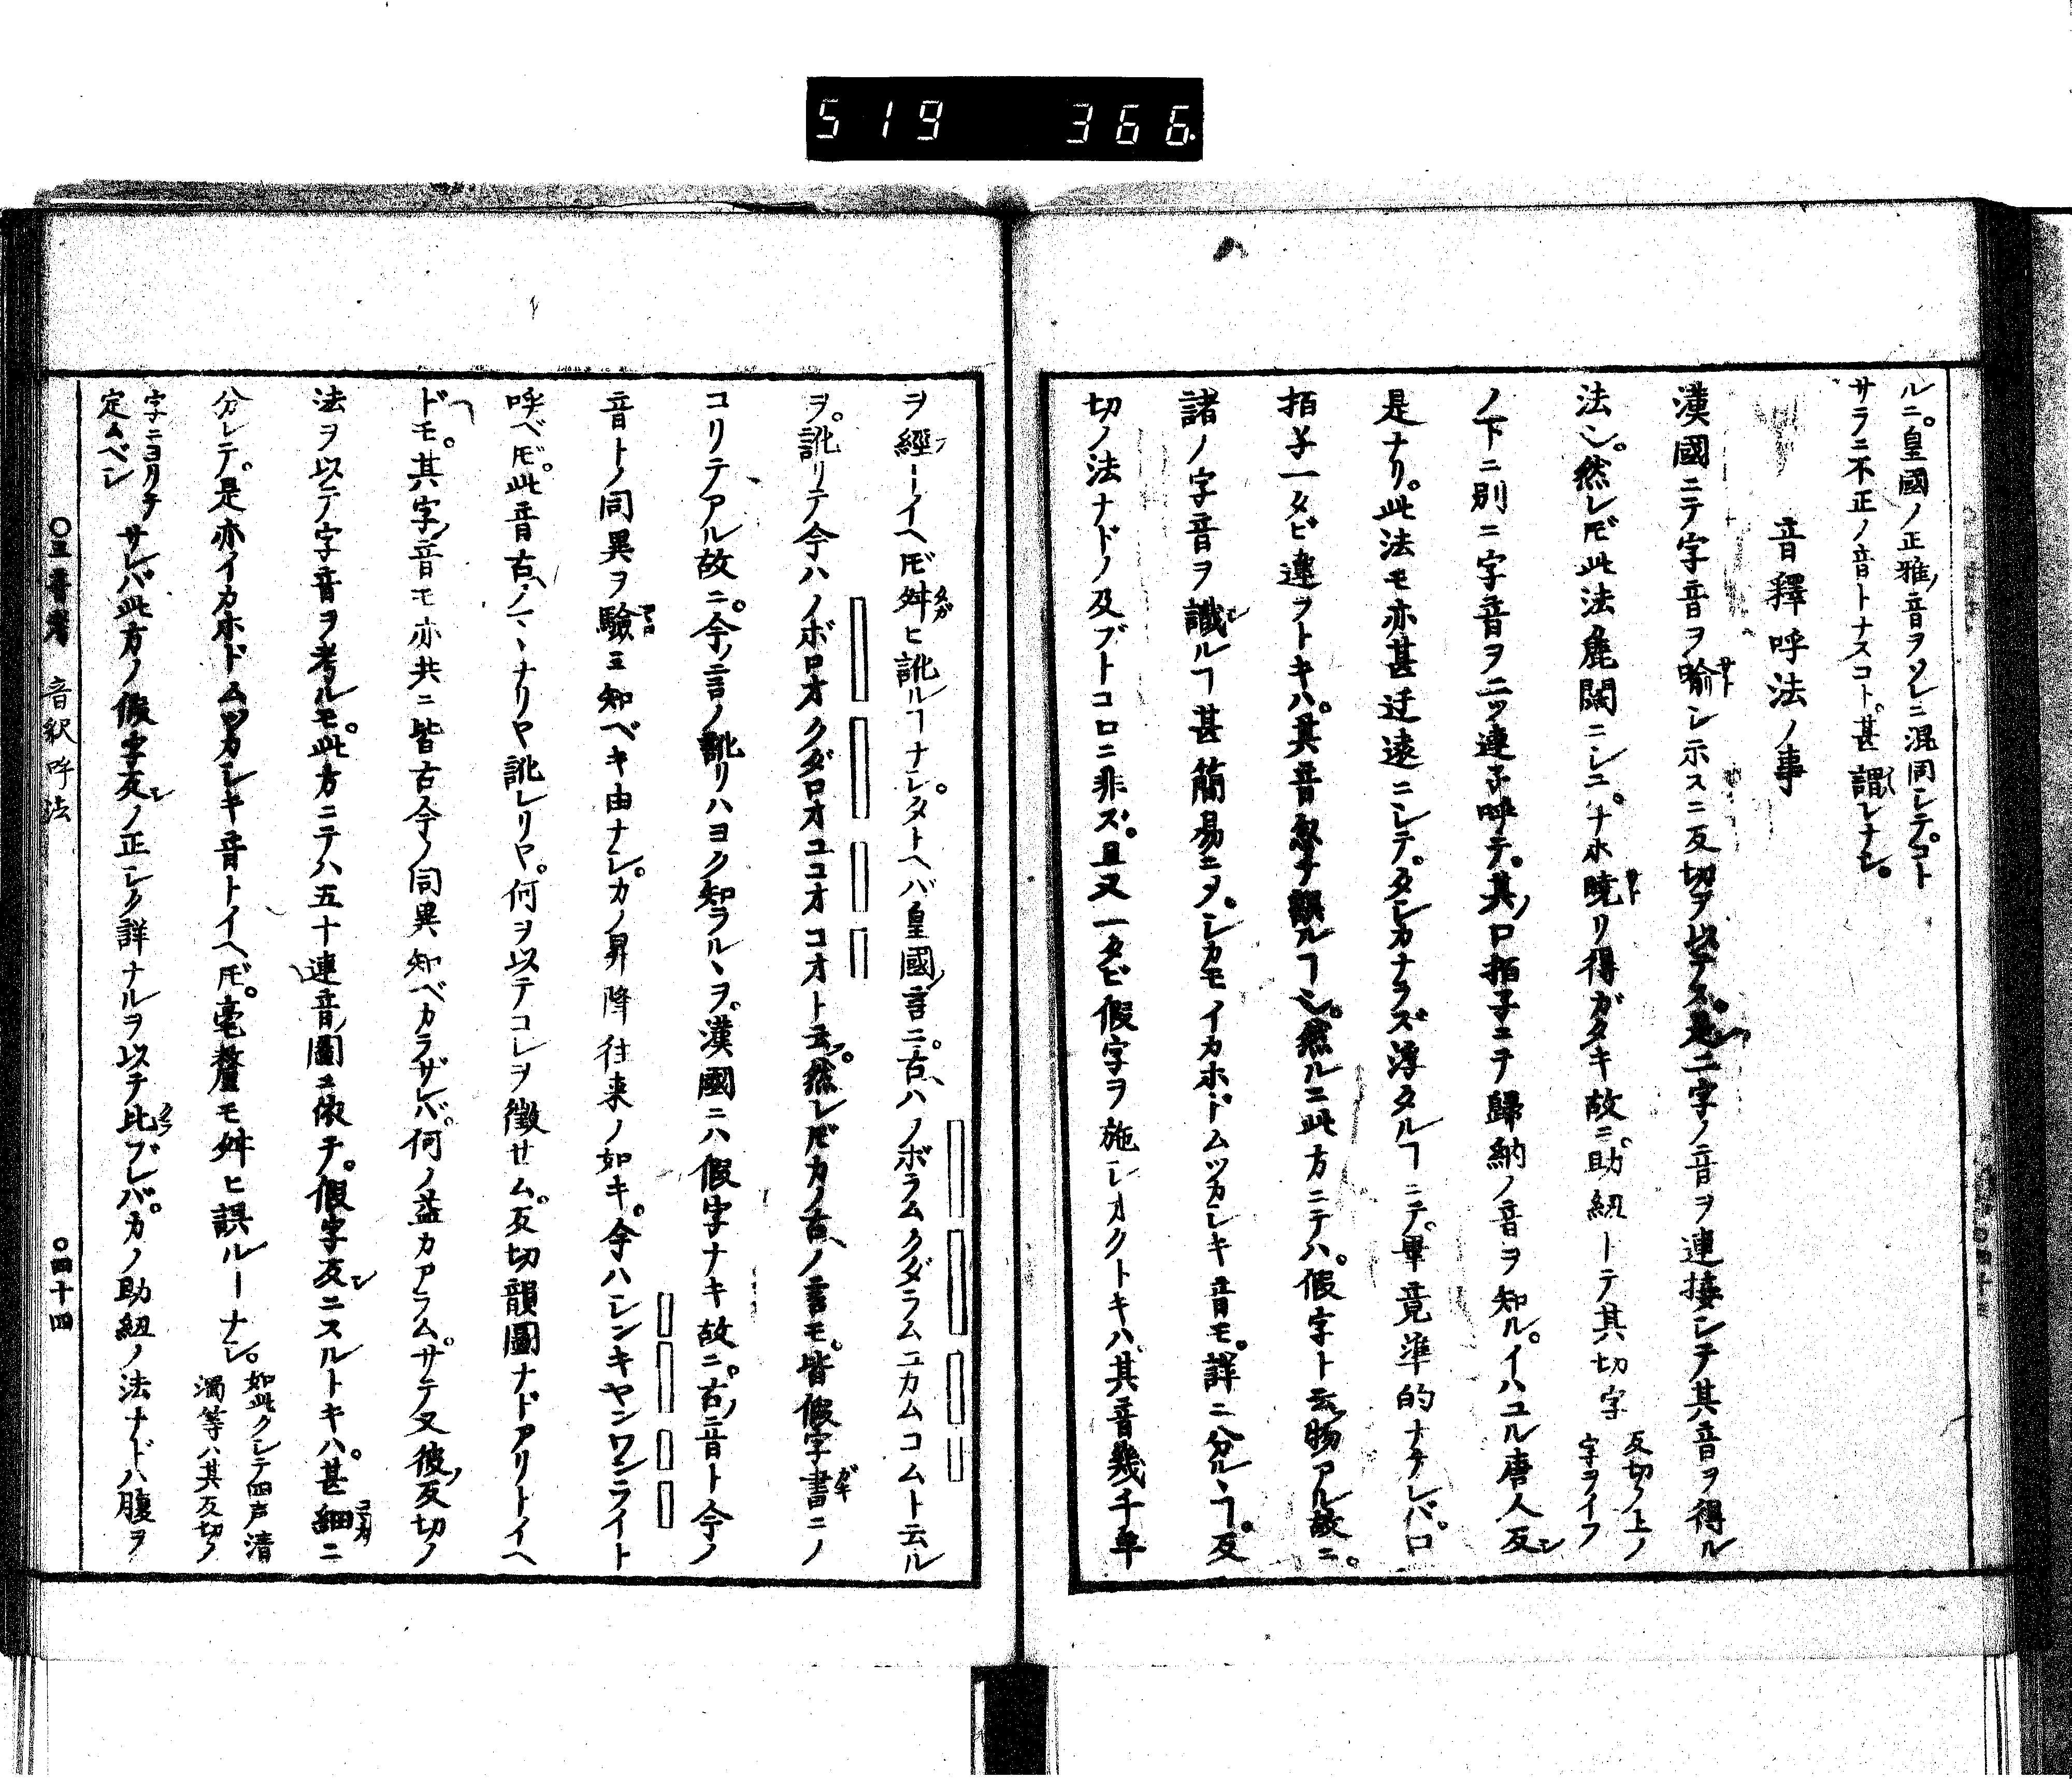 519 366.
ルニ。皇國ノ正雅ノ音ヲソレニ混同シテ。コト
サラニ不正ノ音トナスコト。甚謂レナシ。
音釋呼法ノ事
漢國ニテ字音ヲ喩シ示スニ反切ヲ以テス。是レ二字ノ音ヲ連接シテ其音ヲ得ル
法也。然レ𪜈此法麁闊ニシテ。ナホ曉リ得ガタキ故ニ。助紐ーテ其切字 反切ノ上ノ
字ヲイフ
ノ下ニ別ニ字音ヲ二ッ連子呼テ。其ノ口拍子ニテ歸納ノ音ヲ知ル。イハユル唐人反シ
是ナリ。此法モ亦甚迂遠ニシテ。タシカナラズ浮タルヿニテ。畢竟準的ナケレバ。口
拍子一タビ違フトキハ。其音忽ナ誤ルヿ也。然ルニ此方ニテハ。假字ト云物アル故ニ。
諸ノ字音ヲ識ルヿ甚簡易ニメ。シカモイカホドムツカシキ音モ。詳ニ分ルヽヿ。反
切ノ法ナドノ及ブトコロニ非ズ。且又一タビ假字ヲ施シオクトキハ。其音幾千年
ヲ經ーイヘ𪜈舛ヒ訛ルヿナシ。タトヘバ皇國ノ言ニ。古ハノボラムクダラムユカムコムト云ル
ヲ。訛リテ今ハノボロオクダロオユコオコオト云フ。然レ𪜈カノ古ノ言モ。皆假字書ニノ
コリテアル故ニ。今ノ言ノ訛リハヨク知ラルヽヲ。漢國ニハ假字ナキ故ニ。古ノ音ト今ノ
音トノ同異ヲ驗ミ知ベキ由ナシ。カノ昇降往来ノ如キ。今ハシンキヤンワンライト
呼ベ𪜈。此音古ノマヽナリヤ訛レリヤ。何ヲ以テコレヲ徴セム。反切韻圖ナドアリトイヘ
ドモ。其字ノ音モ亦共ニ皆古今ノ同異知ベカラザレバ。何ノ益カアラム。サテ又彼ノ反切ノ
法ヲ以テ字音ヲ考ルモ。此方ニテハ五十連音ノ圖ニ依テ。假字反シニスルトキハ。甚細ニ
分レテ。是亦イカホドムツカシキ音トイヘ𪜈。毫釐モ舛ヒ誤ルーナシ。如此クシテ四声清
濁等ハ其反切ノ
字ニヨリテ
定ムベシ サレバ此方ノ假字反シノ正シク詳ナルヲ以テ比ブレバ。カノ助紐ノ法ナドハ腹ヲ
〇三音考 音釈呼法 〇四十四